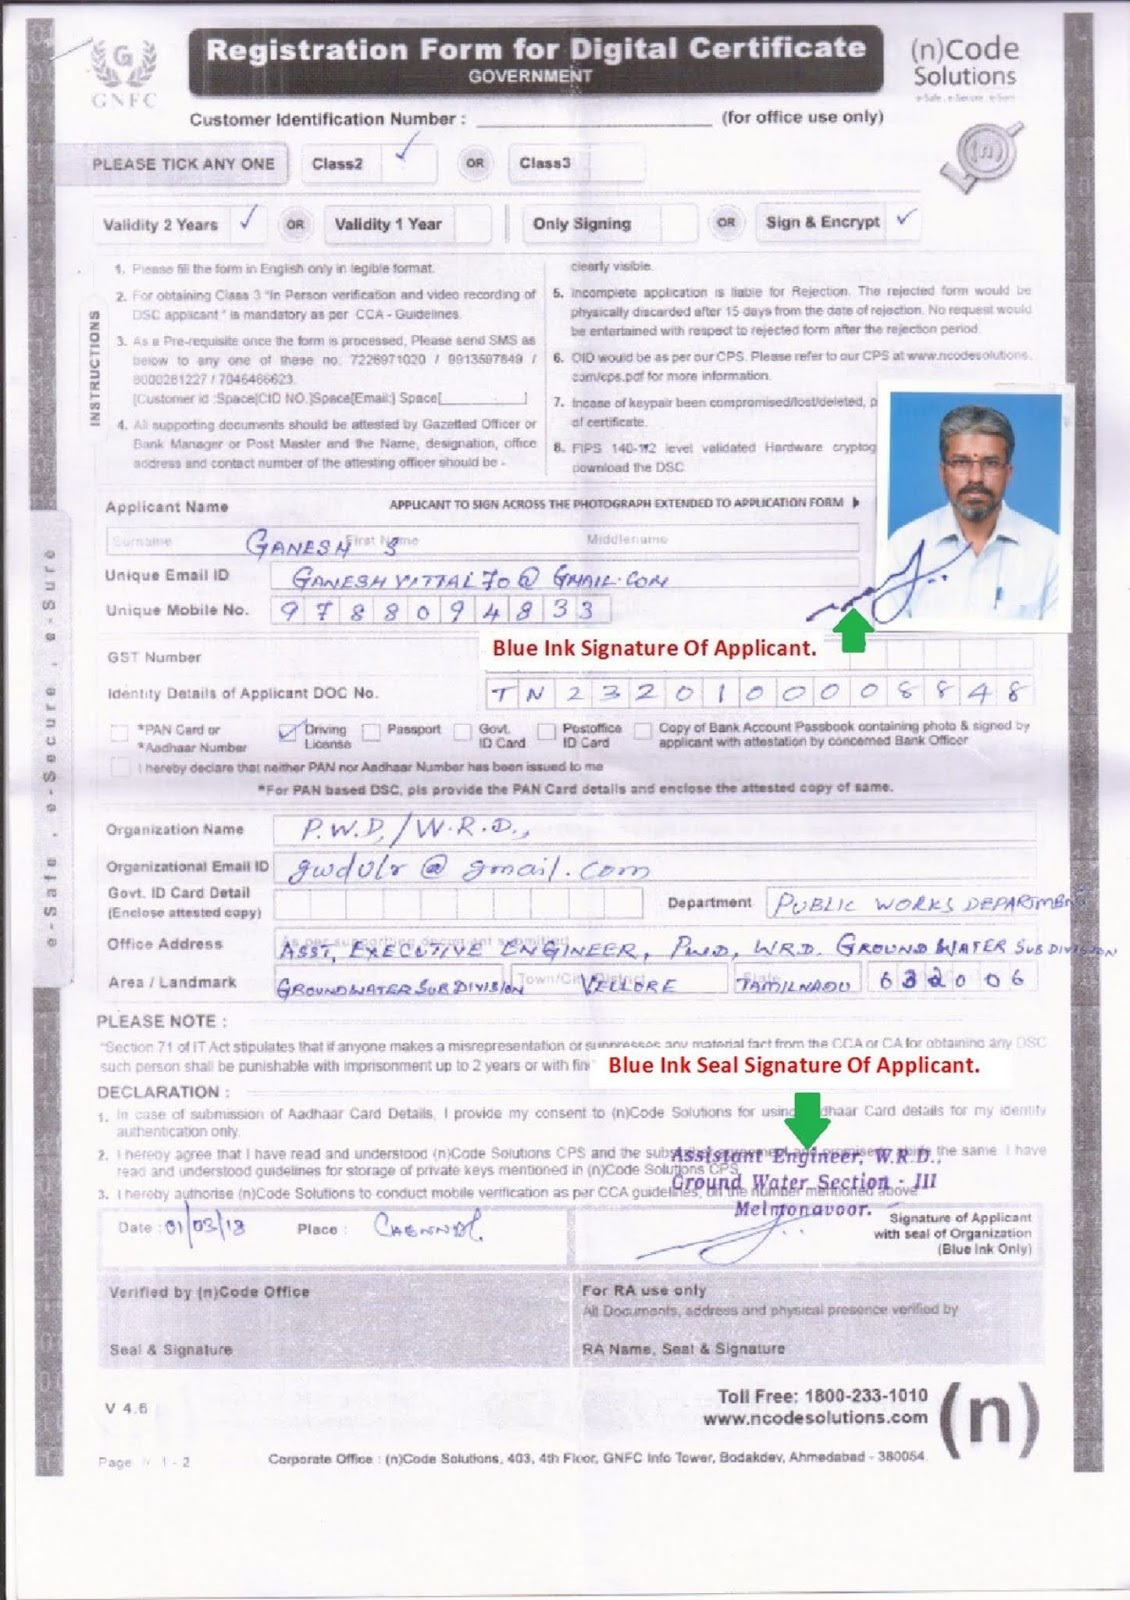 GNFC
Registration Form for Digital Certificate
GOVERNMENT
(n)Code
Solutions
e-Safe . e-Secure . e-Sure
Customer Identification Number : (for office use only)
PLEASE TICK ANY ONE Class2 ✓ OR Class3
Validity 2 Years ✓ OR Validity 1 Year Only Signing OR Sign & Encrypt ✓
INSTRUCTIONS
1. Please fill the form in English only in legible format.
2. For obtaining Class 3 "In Person verification and video recording of
DSC applicant " is mandatory as per CCA - Guidelines.
3. As a Pre-requisite once the form is processed, Please send SMS as
below to any one of these no. 7226971020 / 9913597849 /
8000281227 / 7046466623.
[Customer id :Space[CID NO.]Space[Email:] Space[ ]
4. All supporting documents should be attested by Gazetted Officer or
Bank Manager or Post Master and the Name, designation, office
address and contact number of the attesting officer should be -
clearly visible.
5. Incomplete application is liable for Rejection. The rejected form would be
physically discarded after 15 days from the date of rejection. No request would
be entertained with respect to rejected form after the rejection period.
6. OID would be as per our CPS. Please refer to our CPS at www.ncodesolutions.
com/cps.pdf for more information.
7. Incase of keypair been compromised/lost/deleted, p
of certificate.
8. FIPS 140-1/2 level validated Hardware cryptog
download the DSC
Applicant Name APPLICANT TO SIGN ACROSS THE PHOTOGRAPH EXTENDED TO APPLICATION FORM
Surname First Name Middlename
GANESH S
Unique Email ID GANESHVITTAL70@GMAIL.COM
Unique Mobile No. 9788094833
Blue Ink Signature Of Applicant.
GST Number
Identity Details of Applicant DOC No. TN23201000008848
*PAN Card or
*Aadhaar Number
✓ Driving
License
Passport
Govt.
ID Card
Postoffice
ID Card
Copy of Bank Account Passbook containing photo & signed by
applicant with attestation by concerned Bank Officer
I hereby declare that neither PAN nor Aadhaar Number has been issued to me
*For PAN based DSC, pls provide the PAN Card details and enclose the attested copy of same.
Organization Name P.W.D,/W.R.D.,
Organizational Email ID gwdvlr@gmail.com
Govt. ID Card Detail
(Enclose attested copy)
Department PUBLIC WORKS DEPARTMENT
As per supporting document submitted
Office Address ASST, EXECUTIVE ENGINEER, PWD, WRD. GROUND WATER SUB DIVISION
Area / Landmark GROUNDWATER SUB DIVISION Town/City/District VELLORE State TAMILNADU 632006
PLEASE NOTE :
"Section 71 of IT Act stipulates that if anyone makes a misrepresentation or suppresses any material fact from the CCA or CA for obtaining any DSC
such person shall be punishable with imprisonment up to 2 years or with fin
Blue Ink Seal Signature Of Applicant.
DECLARATION :
1. In case of submission of Aadhaar Card Details, I provide my consent to (n)Code Solutions for using Aadhaar Card details for my identity
authentication only.
2. I hereby agree that I have read and understood (n)Code Solutions CPS and the subscriber agreement and promise to abide the same. I have
read and understood guidelines for storage of private keys mentioned in (n)Code Solutions CPS
3. I hereby authorise (n)Code Solutions to conduct mobile verification as per CCA guidelines, on the number mentioned above
Assistant Engineer, W.R.D.,
Ground Water Section - III
Melmonavoor.
Date : 01/03/18 Place : CHENNAI.
Signature of Applicant
with seal of Organization
(Blue Ink Only)
Verified by (n)Code Office
Seal & Signature
For RA use only
All Documents, address and physical presence verified by
RA Name, Seal & Signature
e-Safe . e-Secure . e-Sure
V 4.6
Toll Free: 1800-233-1010
www.ncodesolutions.com
(n)
Page 1 - 2
Corporate Office : (n)Code Solutions, 403, 4th Floor, GNFC Info Tower, Bodakdev, Ahmedabad - 380054.